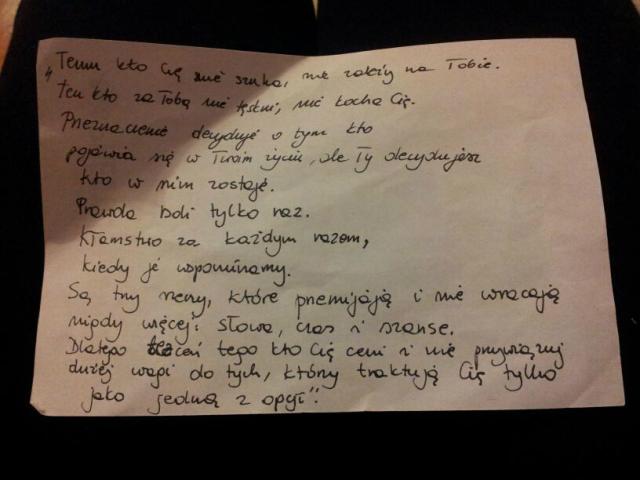 "Temu kto Cię nie szuka, nie zależy na Tobie.
Ten kto za Tobą nie tęskni, nie kocha Cię.
Przeznaczenie decyduje o tym kto
pojawia się w Twoim życiu, ale Ty decydujesz
kto w nim zostaje.
Prawda boli tylko raz.
Kłamstwo za każdym razem,
kiedy je wspominamy.
Są trzy rzeczy, które przemijają i nie wracają
nigdy więcej: słowa, czas i szanse.
Dlatego ceń tego kto Cię ceni i nie przywiązuj
dużej wagi do tych, który traktują Cię tylko
jako jedną z opcji".